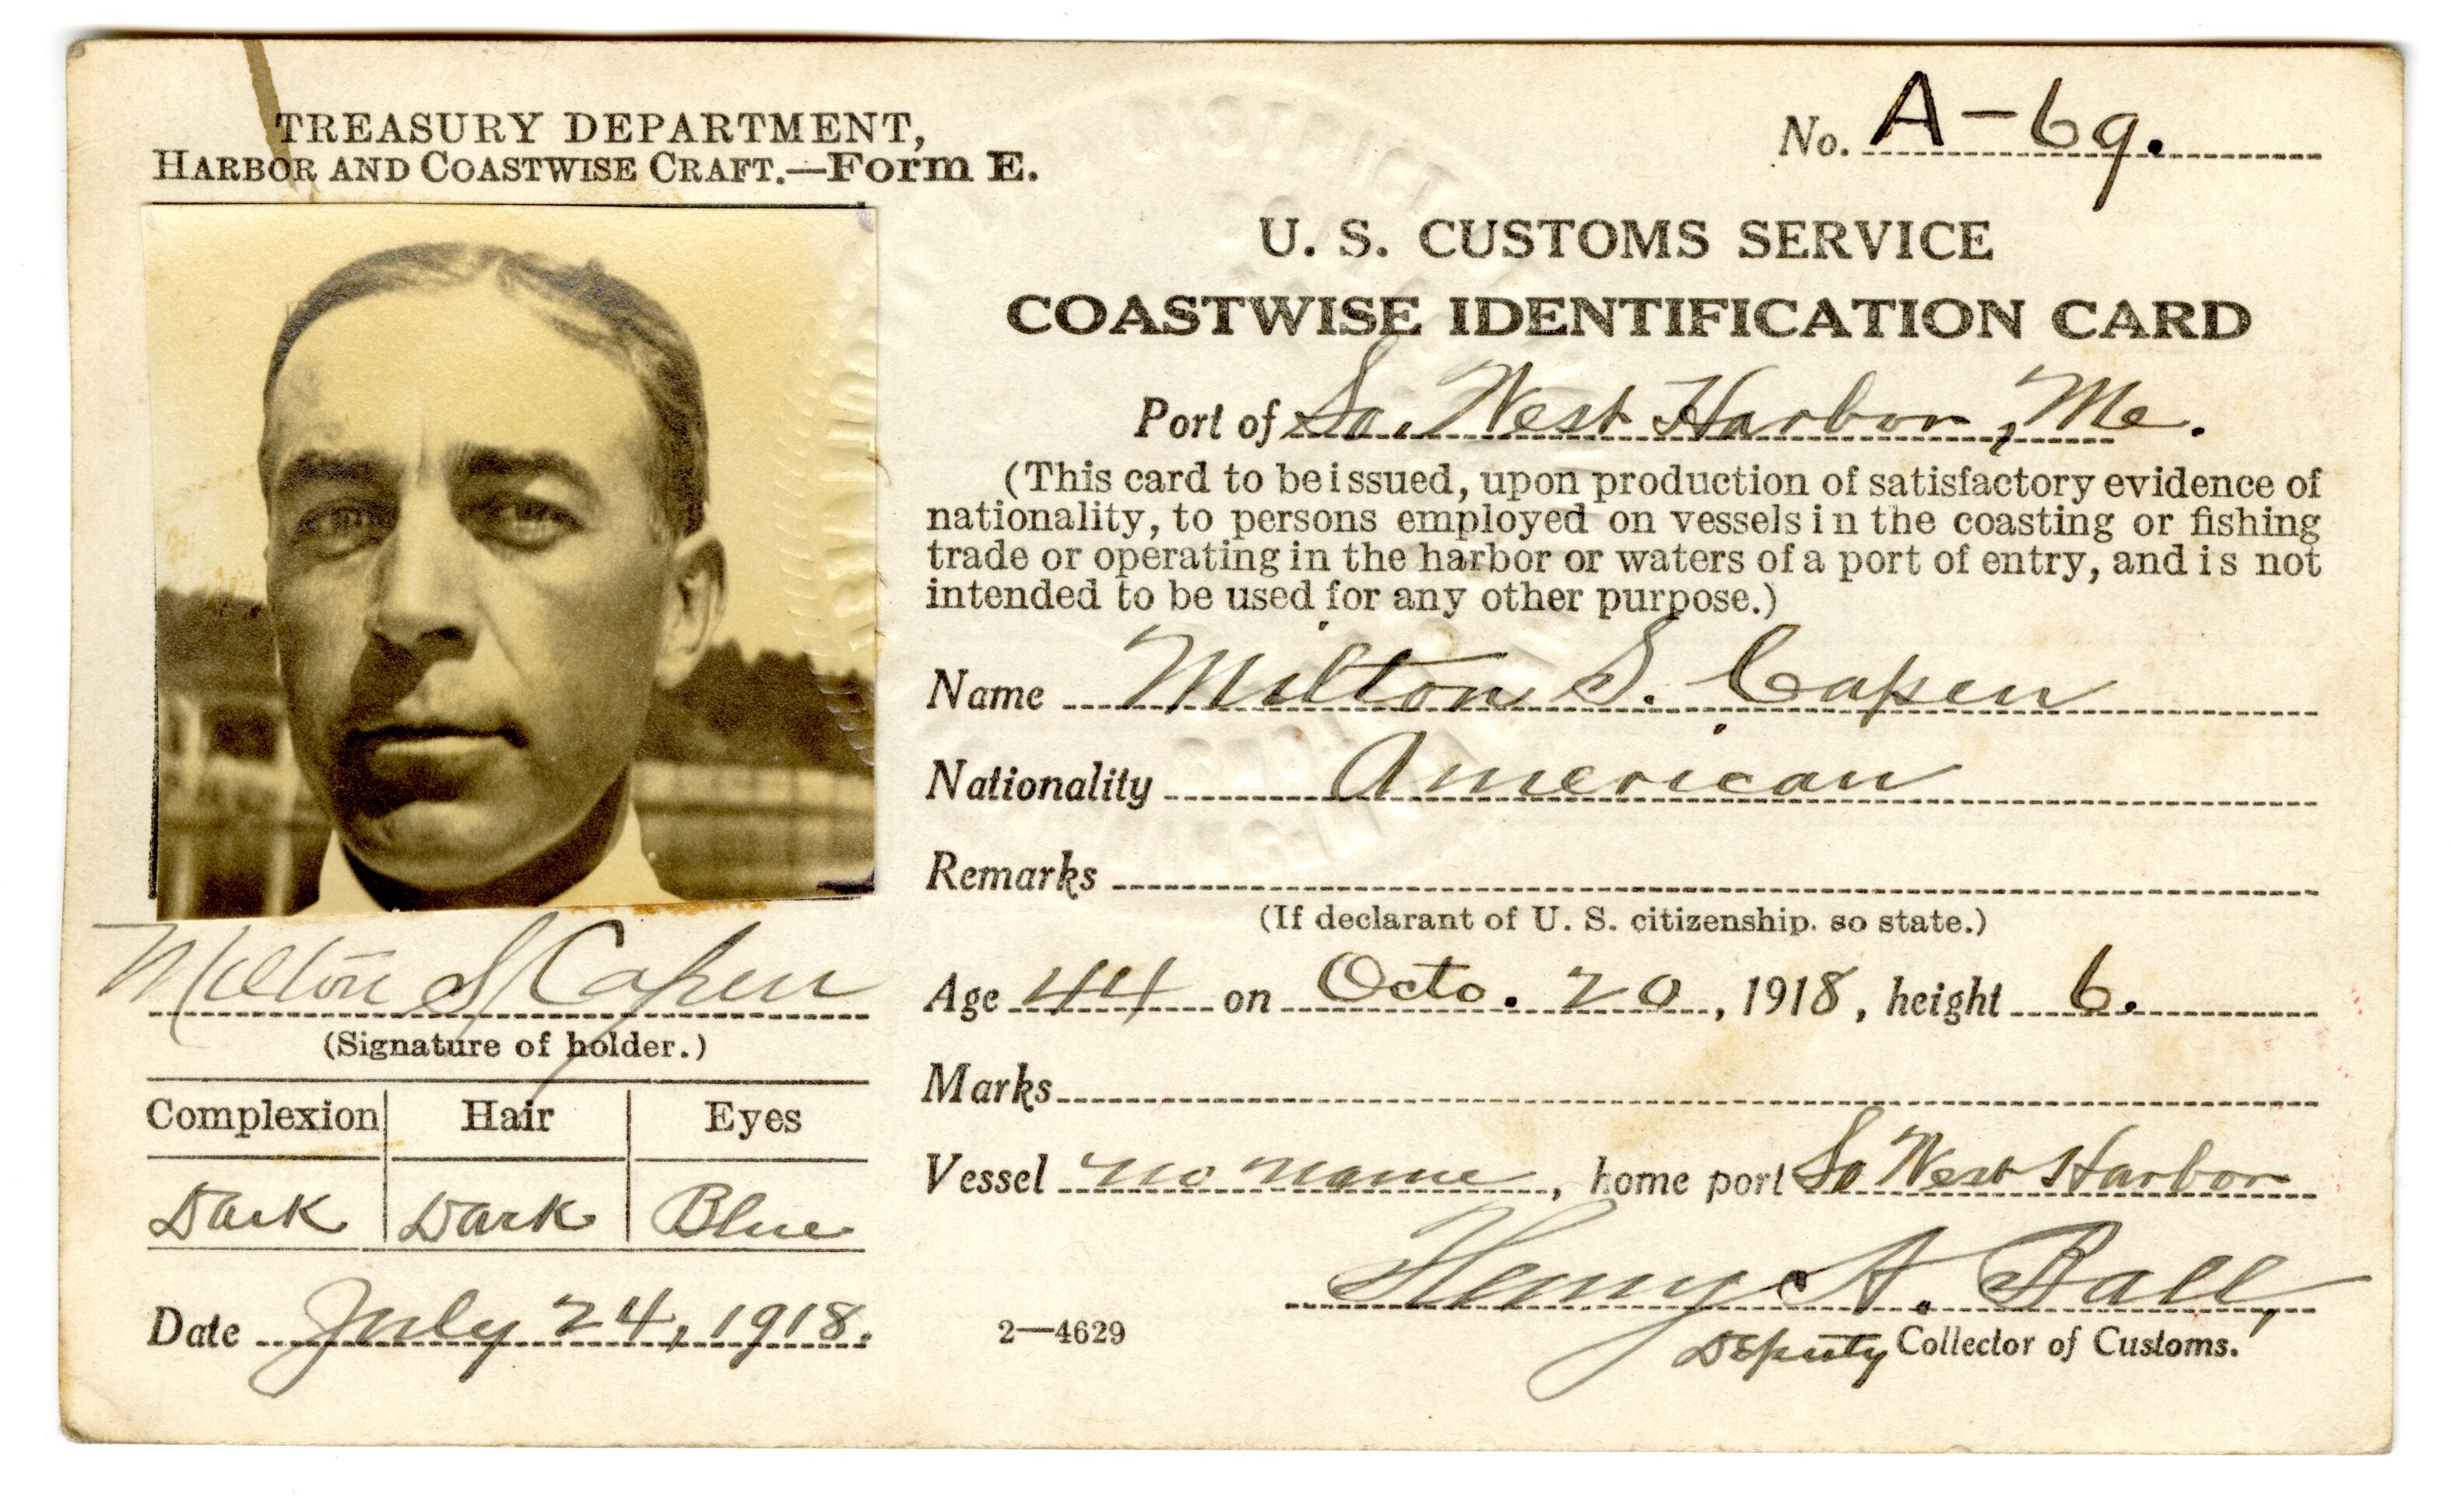 TREASURY DEPARTMENT,
HARBOR AND COASTWISE CRAFT.—Form E.
No. A-69.
U. S. CUSTOMS SERVICE
COASTWISE IDENTIFICATION CARD
Port of So. West Harbor, Me.
(This card to be issued, upon production of satisfactory evidence of
nationality, to persons employed on vessels in the coasting or fishing
trade or operating in the harbor or waters of a port of entry, and is not
intended to be used for any other purpose.)
Name Milton S. Capen
Nationality American
Remarks
(If declarant of U. S. citizenship. so state.)
Milton S Capen
(Signature of holder.)
Age 44 on Octo. 20, 1918, height 6.
Marks
Complexion Hair Eyes
Dark Dark Blue
Vessel no name, home port So West Harbor
Henry A. Ball,
Deputy Collector of Customs.
Date July 24, 1918.
2—4629